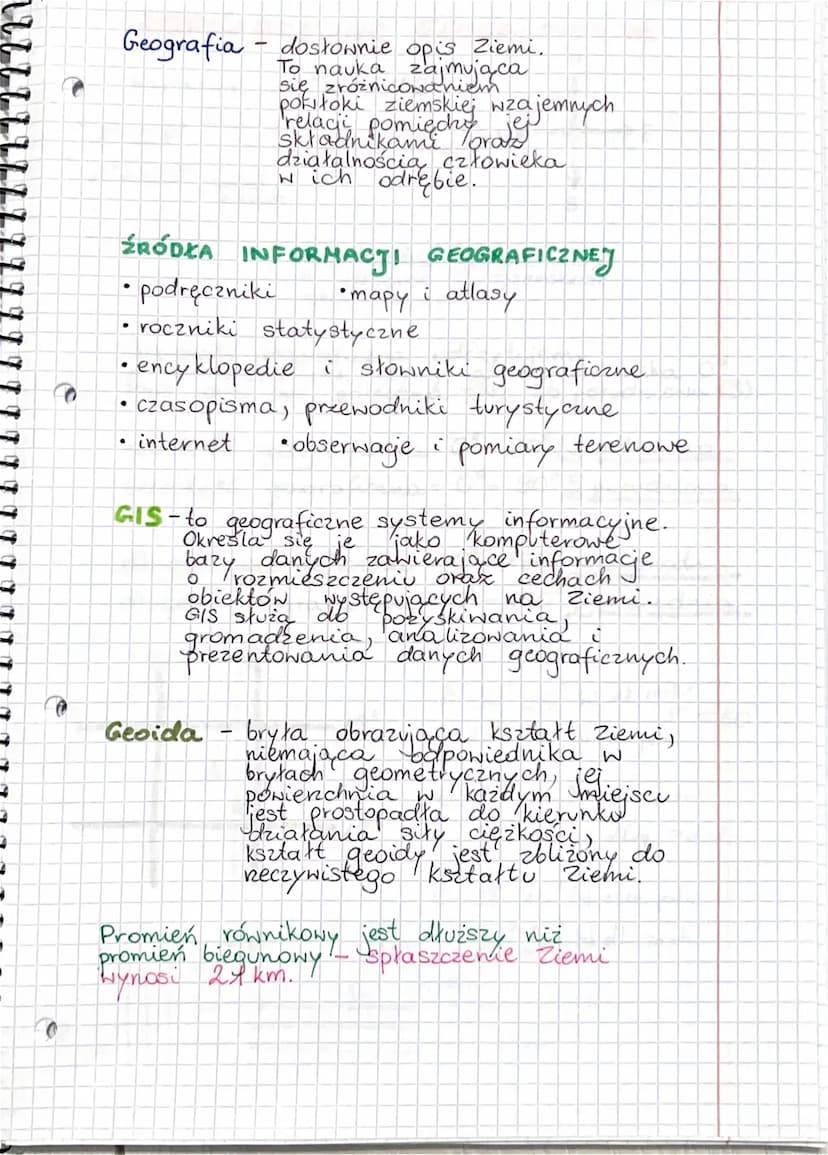 Geografia - dosłownie opis Ziemi.
To nauka zajmująca
się zróżnicowaniem
powłoki ziemskiej wzajemnych
relacji pomiędzy jej
składnikami oraz
działalnością człowieka
w ich odrębie.
ŹRÓDŁA INFORMACJI GEOGRAFICZNEJ
• podręczniki • mapy i atlasy
• roczniki statystyczne
• encyklopedie i słowniki geograficzne
• czasopisma, przewodniki turystyczne
• internet • obserwacje i pomiary terenowe
GIS - to geograficzne systemy informacyjne.
Określa się je jako komputerowe
bazy danych zawierające informacje
o rozmieszczeniu oraz cechach
obiektów występujących na Ziemi.
GIS służą do pozyskiwania,
gromadzenia, analizowania i
prezentowania danych geograficznych.
Geoida - bryła obrazująca kształt Ziemi,
niemająca odpowiednika w
bryłach geometrycznych, jej
powierzchnia w każdym miejscu
jest prostopadła do kierunku
działania siły ciężkości,
kształt geoidy jest zbliżony do
rzeczywistego kształtu Ziemi.
Promień równikowy jest dłuższy niż
promień biegunowy - spłaszczenie Ziemi
wynosi 21 km.